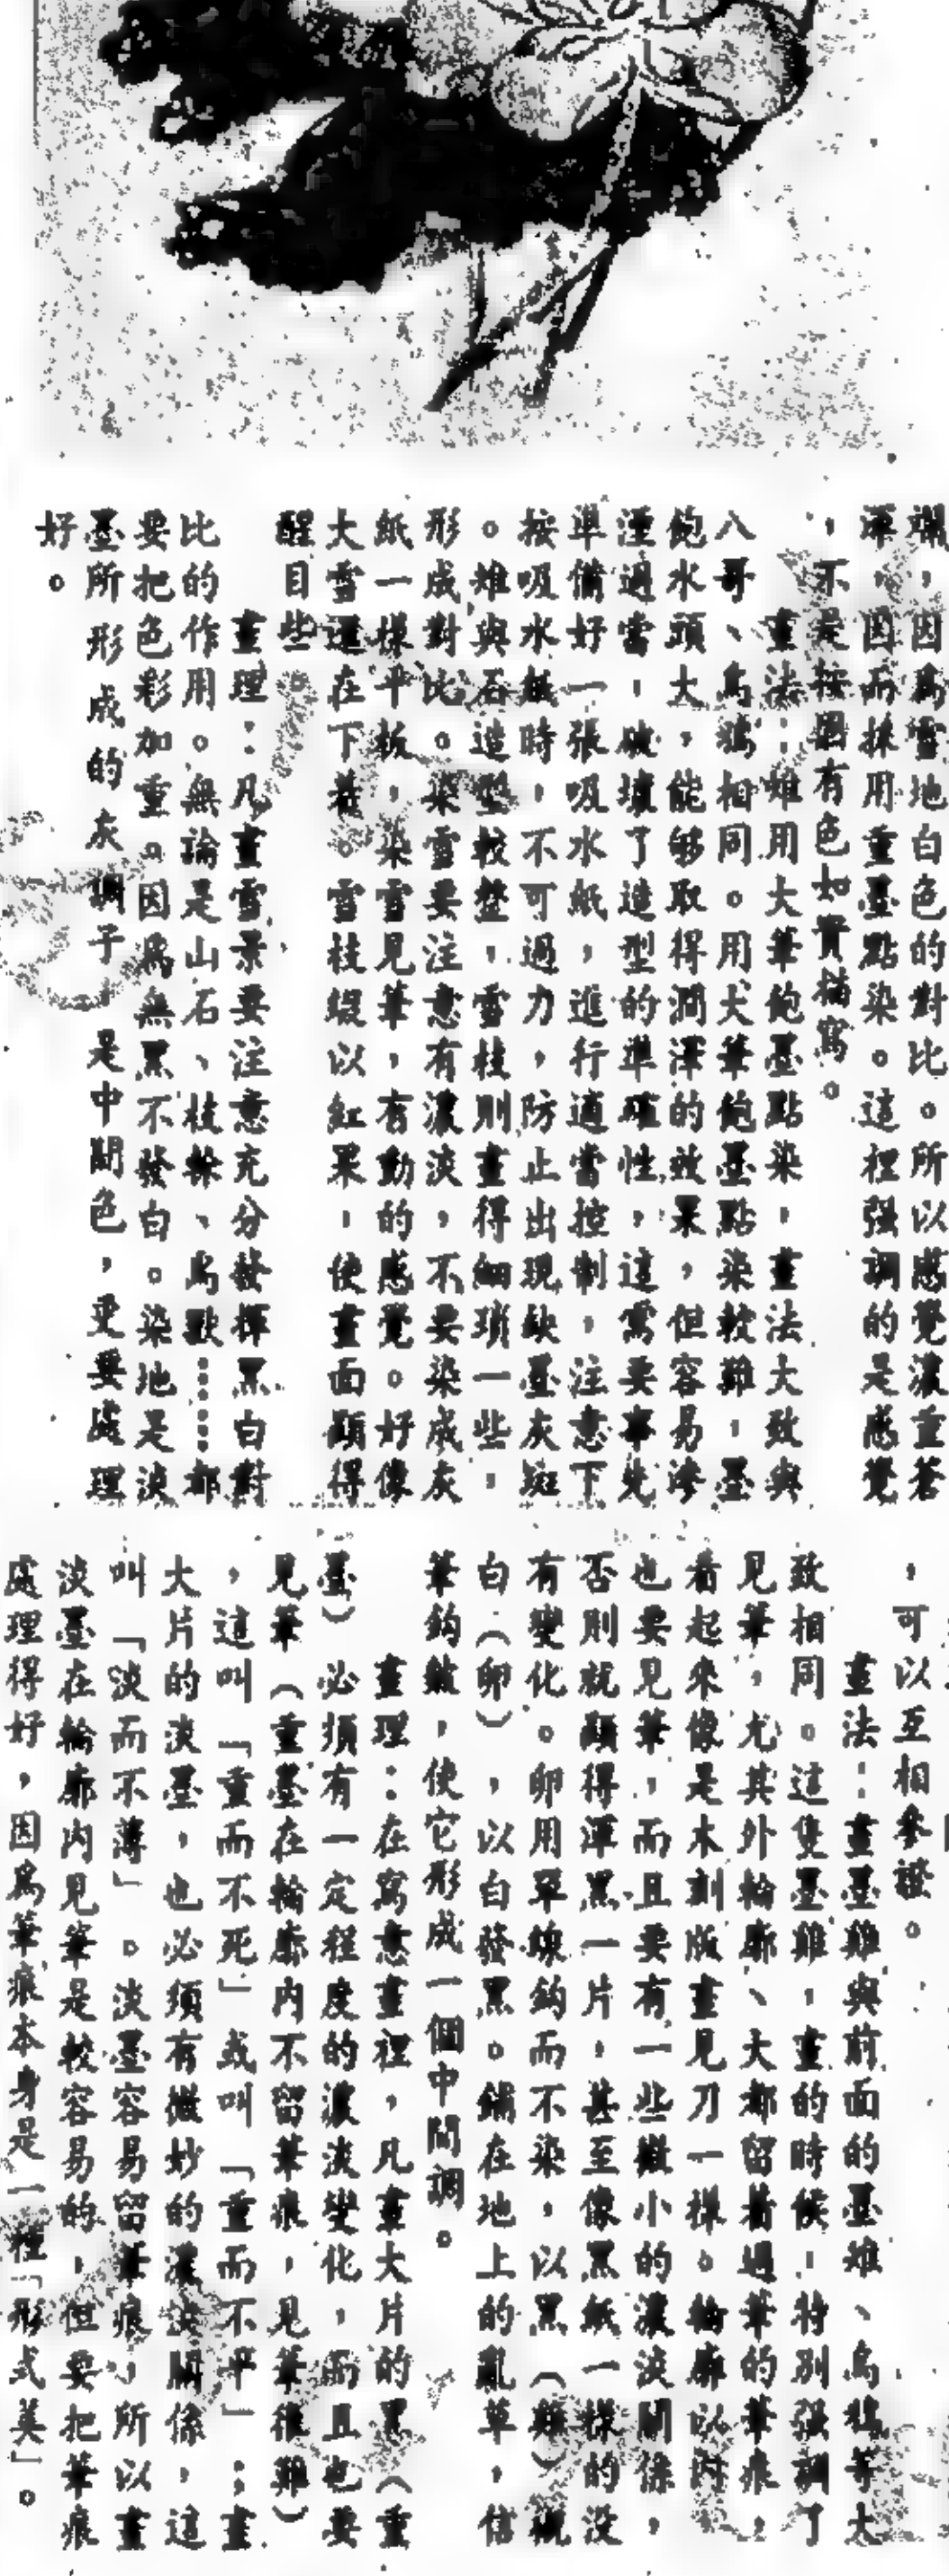 斕，因爲雪地白色的對比。所以感覺濃重蒼
渾，因而採用重墨點染。這裡强調的是感覺
，不是按固有色如實描寫。
畫法：雉用大筆飽墨點染，畫法大致與
八哥、烏鴉相同。用大筆飽墨點染較難，墨
飽水頭大，能够取得潤澤的效果，但容易滲
溼過當，破壞了造型的準確性，這需要事先
準備好一張吸水紙，進行適當控制，注意下
按吸水紙時，不可過力，防止出現缺墨灰斑
。雉與石造型較整，雪枝則畫得細瑣一些，
形成對比。染雪要注意有濃淡，不要染成灰
紙一樣平板，染雪見筆，有動的感覺。好像
大雪還在下着。雪枝綴以紅果，使畫面顯得
醒目些
畫理：凡畫雪景要注意充分發揮黑白對
比的作用。無論是山石、枝榦、鳥獸……都
要把色彩加重。因爲無黑不發白。染地是淡
墨所形成的灰調子，是中間色，更要處理
好。
，可以互相參證。
畫法：畫墨雞與前面的墨雉、烏鴉等大
致相同。這隻墨雞，畫的時候，特別强調了
見筆，尤其外輪廓、大都留着過筆的筆痕，
看起來像是木刻版畫見刀一樣。輪廓以內，
也要見筆，而且要有一些微小的濃淡關係，
否則就顯得渾黑一片，甚至像黑紙一樣的没
有變化。卵用單線鈎而不染，以黑（雞）襯
白（卵），以白發黑。鋪在地上的亂草，信
筆鈎皴，使它形成一個中間調。
畫理：在寫意畫裡，凡畫大片的黑（重
墨）必須有一定程度的濃淡變化，而且也要
見筆（重墨在輪廓内不留筆痕，見筆很難）
，這叫「重而不死」或叫「重而不平」；畫
大片的淡墨，也必須有微妙的濃淡關係，這
叫「淡而不薄」。淡墨容易留筆痕，所以畫
淡墨在輪廓内見筆是較容易的，但要把筆痕
處理得好，因爲筆痕本身是一種「形式美」。